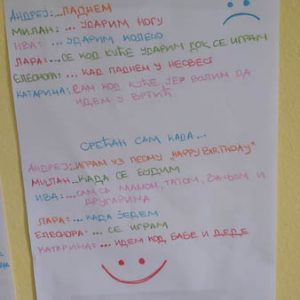 Андреј:...ПАДНЕМ
МИЛАН: ... УДАРИМ НОГУ
ИВА: ... УДАРИМ КОЛЕНО
ЛАРА: ... СЕ КОД КУЋЕ УДАРИМ ДОК СЕ ИГРАМ
ЕЛЕОНОРА: ... КАД ПАДНЕМ У НЕСВЕСТ
КАТАРИНА: САМ КОД КУЋЕ ЈЕР ВОЛИМ ДА
ИДЕМ У ВРТИЋ
СРЕЋАН САМ КАДА...
АНДРЕЈ: ИГРАМ УЗ ПЕСМУ "HAPPY BIRTHDAY"
МИЛАН: ...КАДА СЕ БУДИМ
ИВА: ...САМ СА МАМОМ, ТАТОМ, И
ДРУГАРИМА
ЛАРА: ... КАДА ЈЕДЕМ
ЕЛЕОНОРА: ... СЕ ИГРАМ
КАТАРИНА: ...ИДЕМ КОД БАБЕ И ДЕДЕ